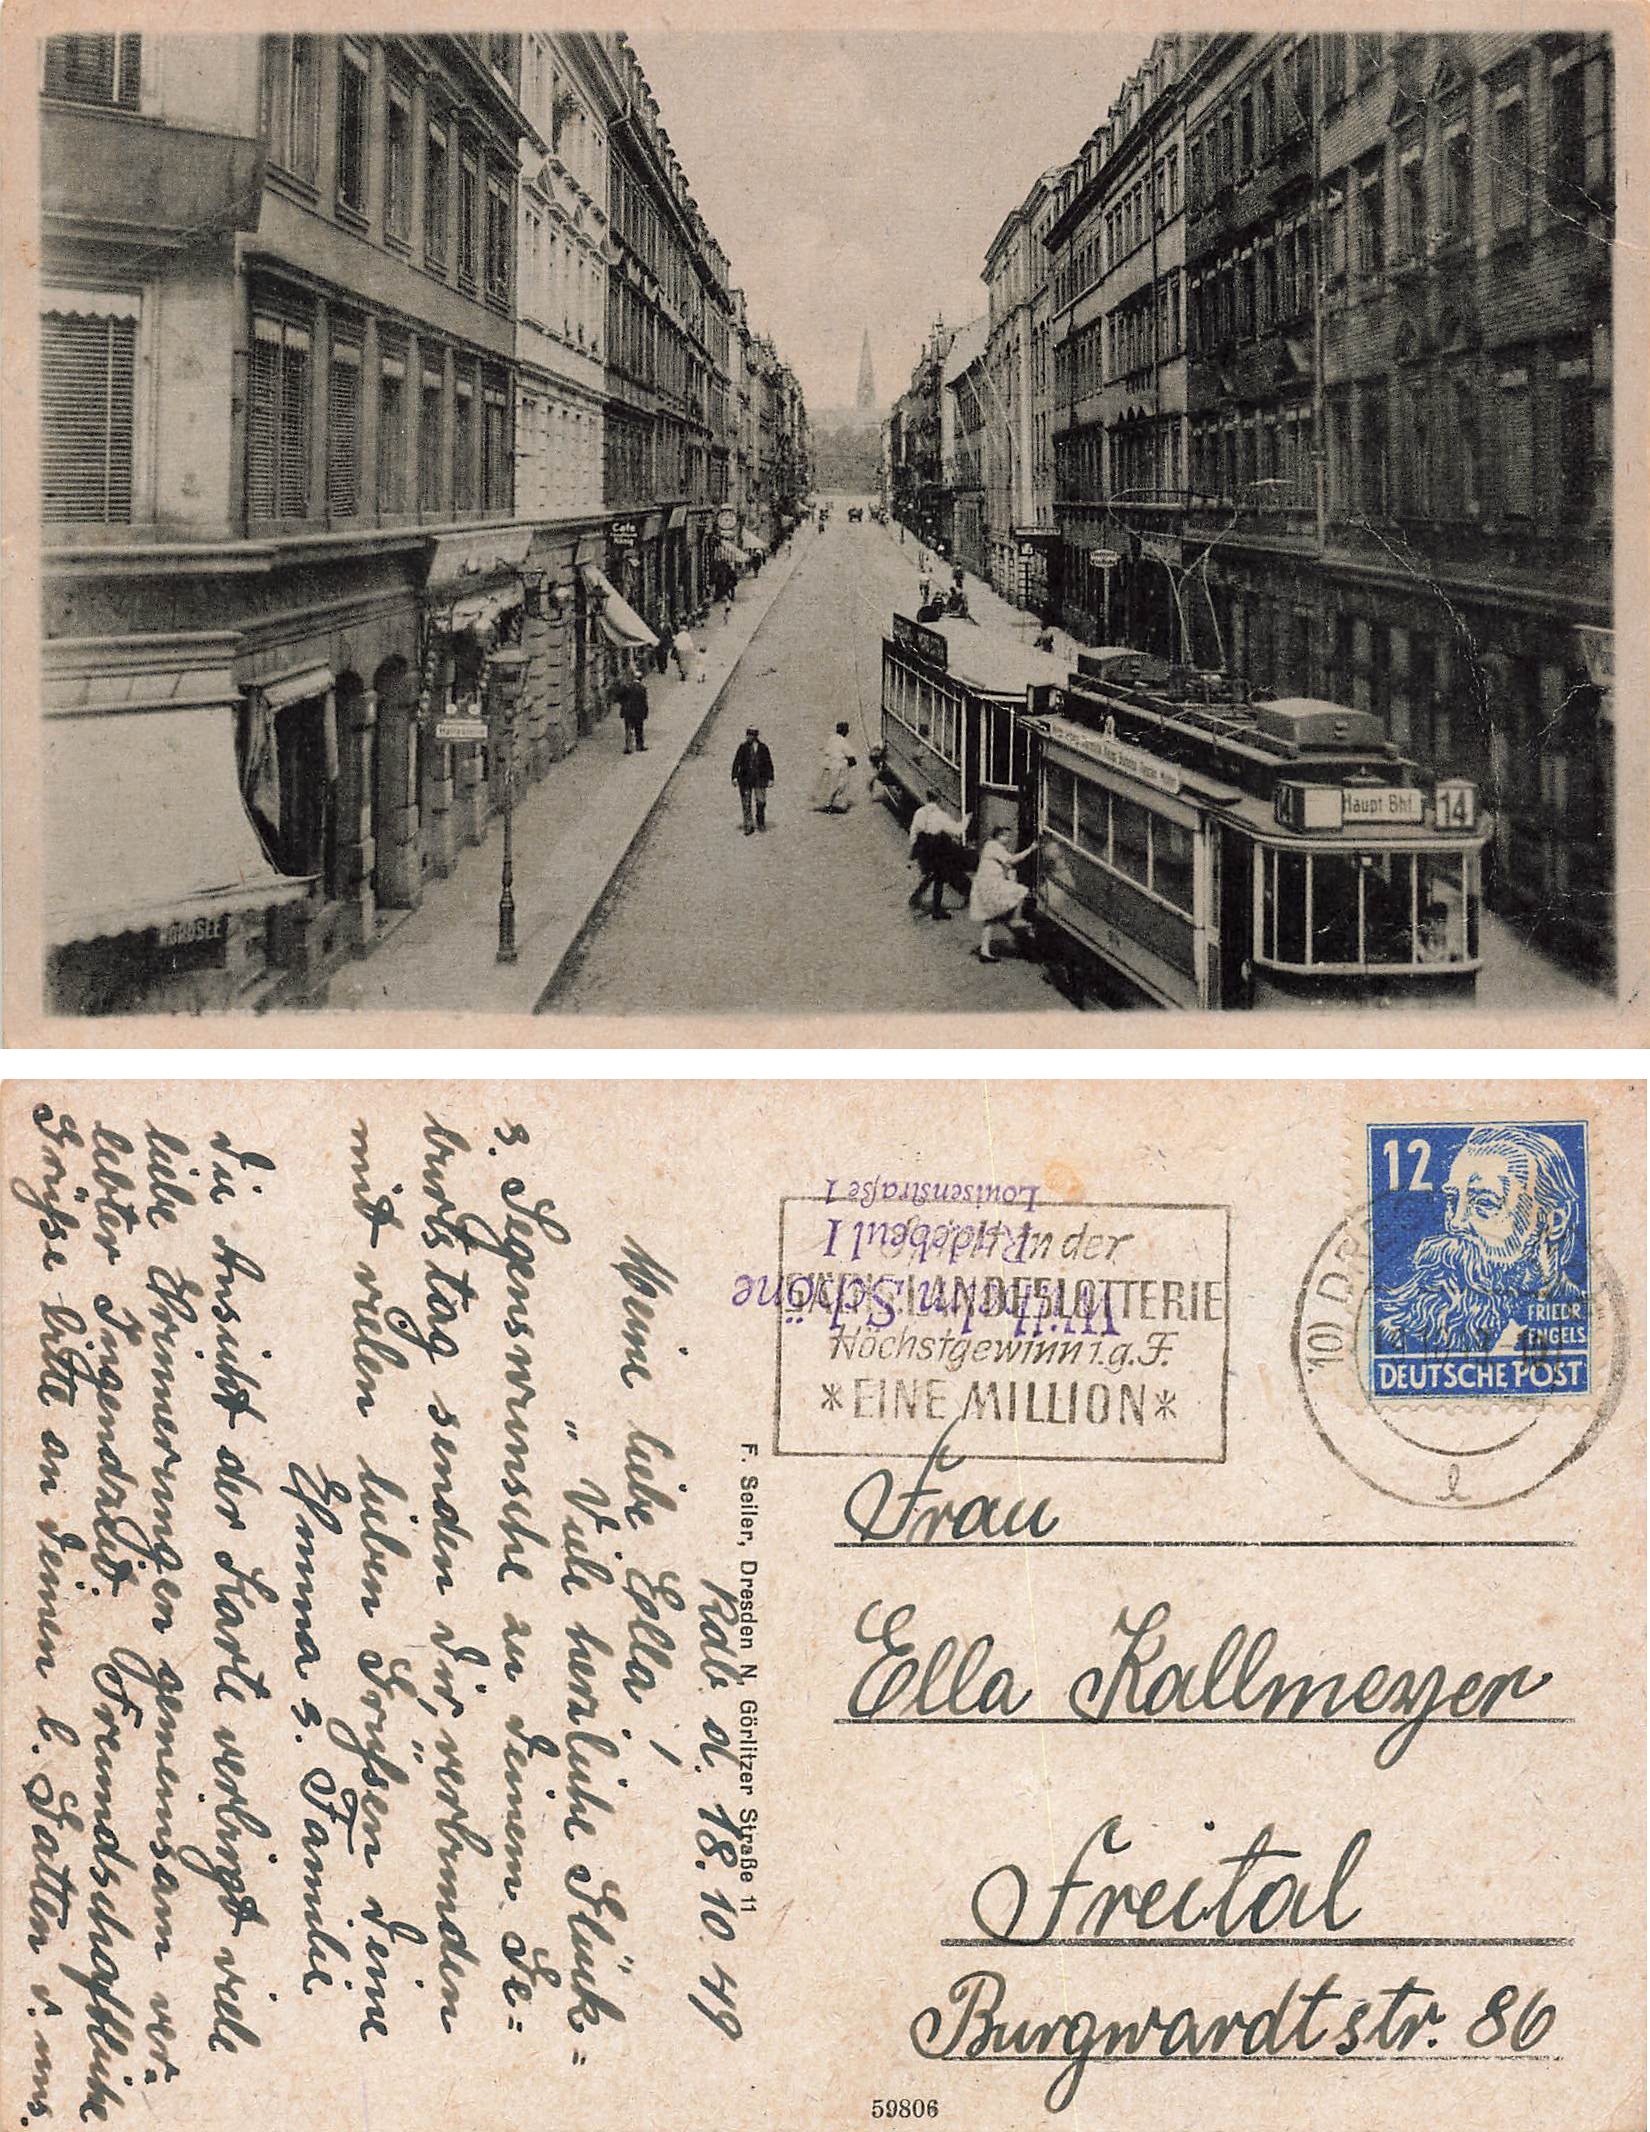 Cafe
Haltestelle
NORDSEE
14
Haupt Bhf.
14
12
FRIEDR.
ENGELS
DEUTSCHE POST
10) DRESDEN
l
Wilhelm Schöne
Radebeul 1
Louisenstraße 1
in der
LANDESLOTTERIE
Höchstgewinn i.g.F.
* EINE MILLION *
F. Seiler, Dresden N, Görlitzer Straße 11
Rdb. d. 18. 10. 49
Meine liebe Ella!
„Viele herzliche Glück=
s. Segenswünsche zu Deinem Ge=
burtstag senden Dir, verbunden
mit vielen lieben Grüssen Deine
Emma s. Familie
Die Ansicht der Karte verbirgt viele
liebe Erinnerungen gemeinsam ver-
lebter Jugendzeit. Freundschaftliche
Grüsse bitte an Deinen l. Gatten v. uns.
Frau
Ella Kallmeyer
Freital
Burgwardtstr. 86
59806